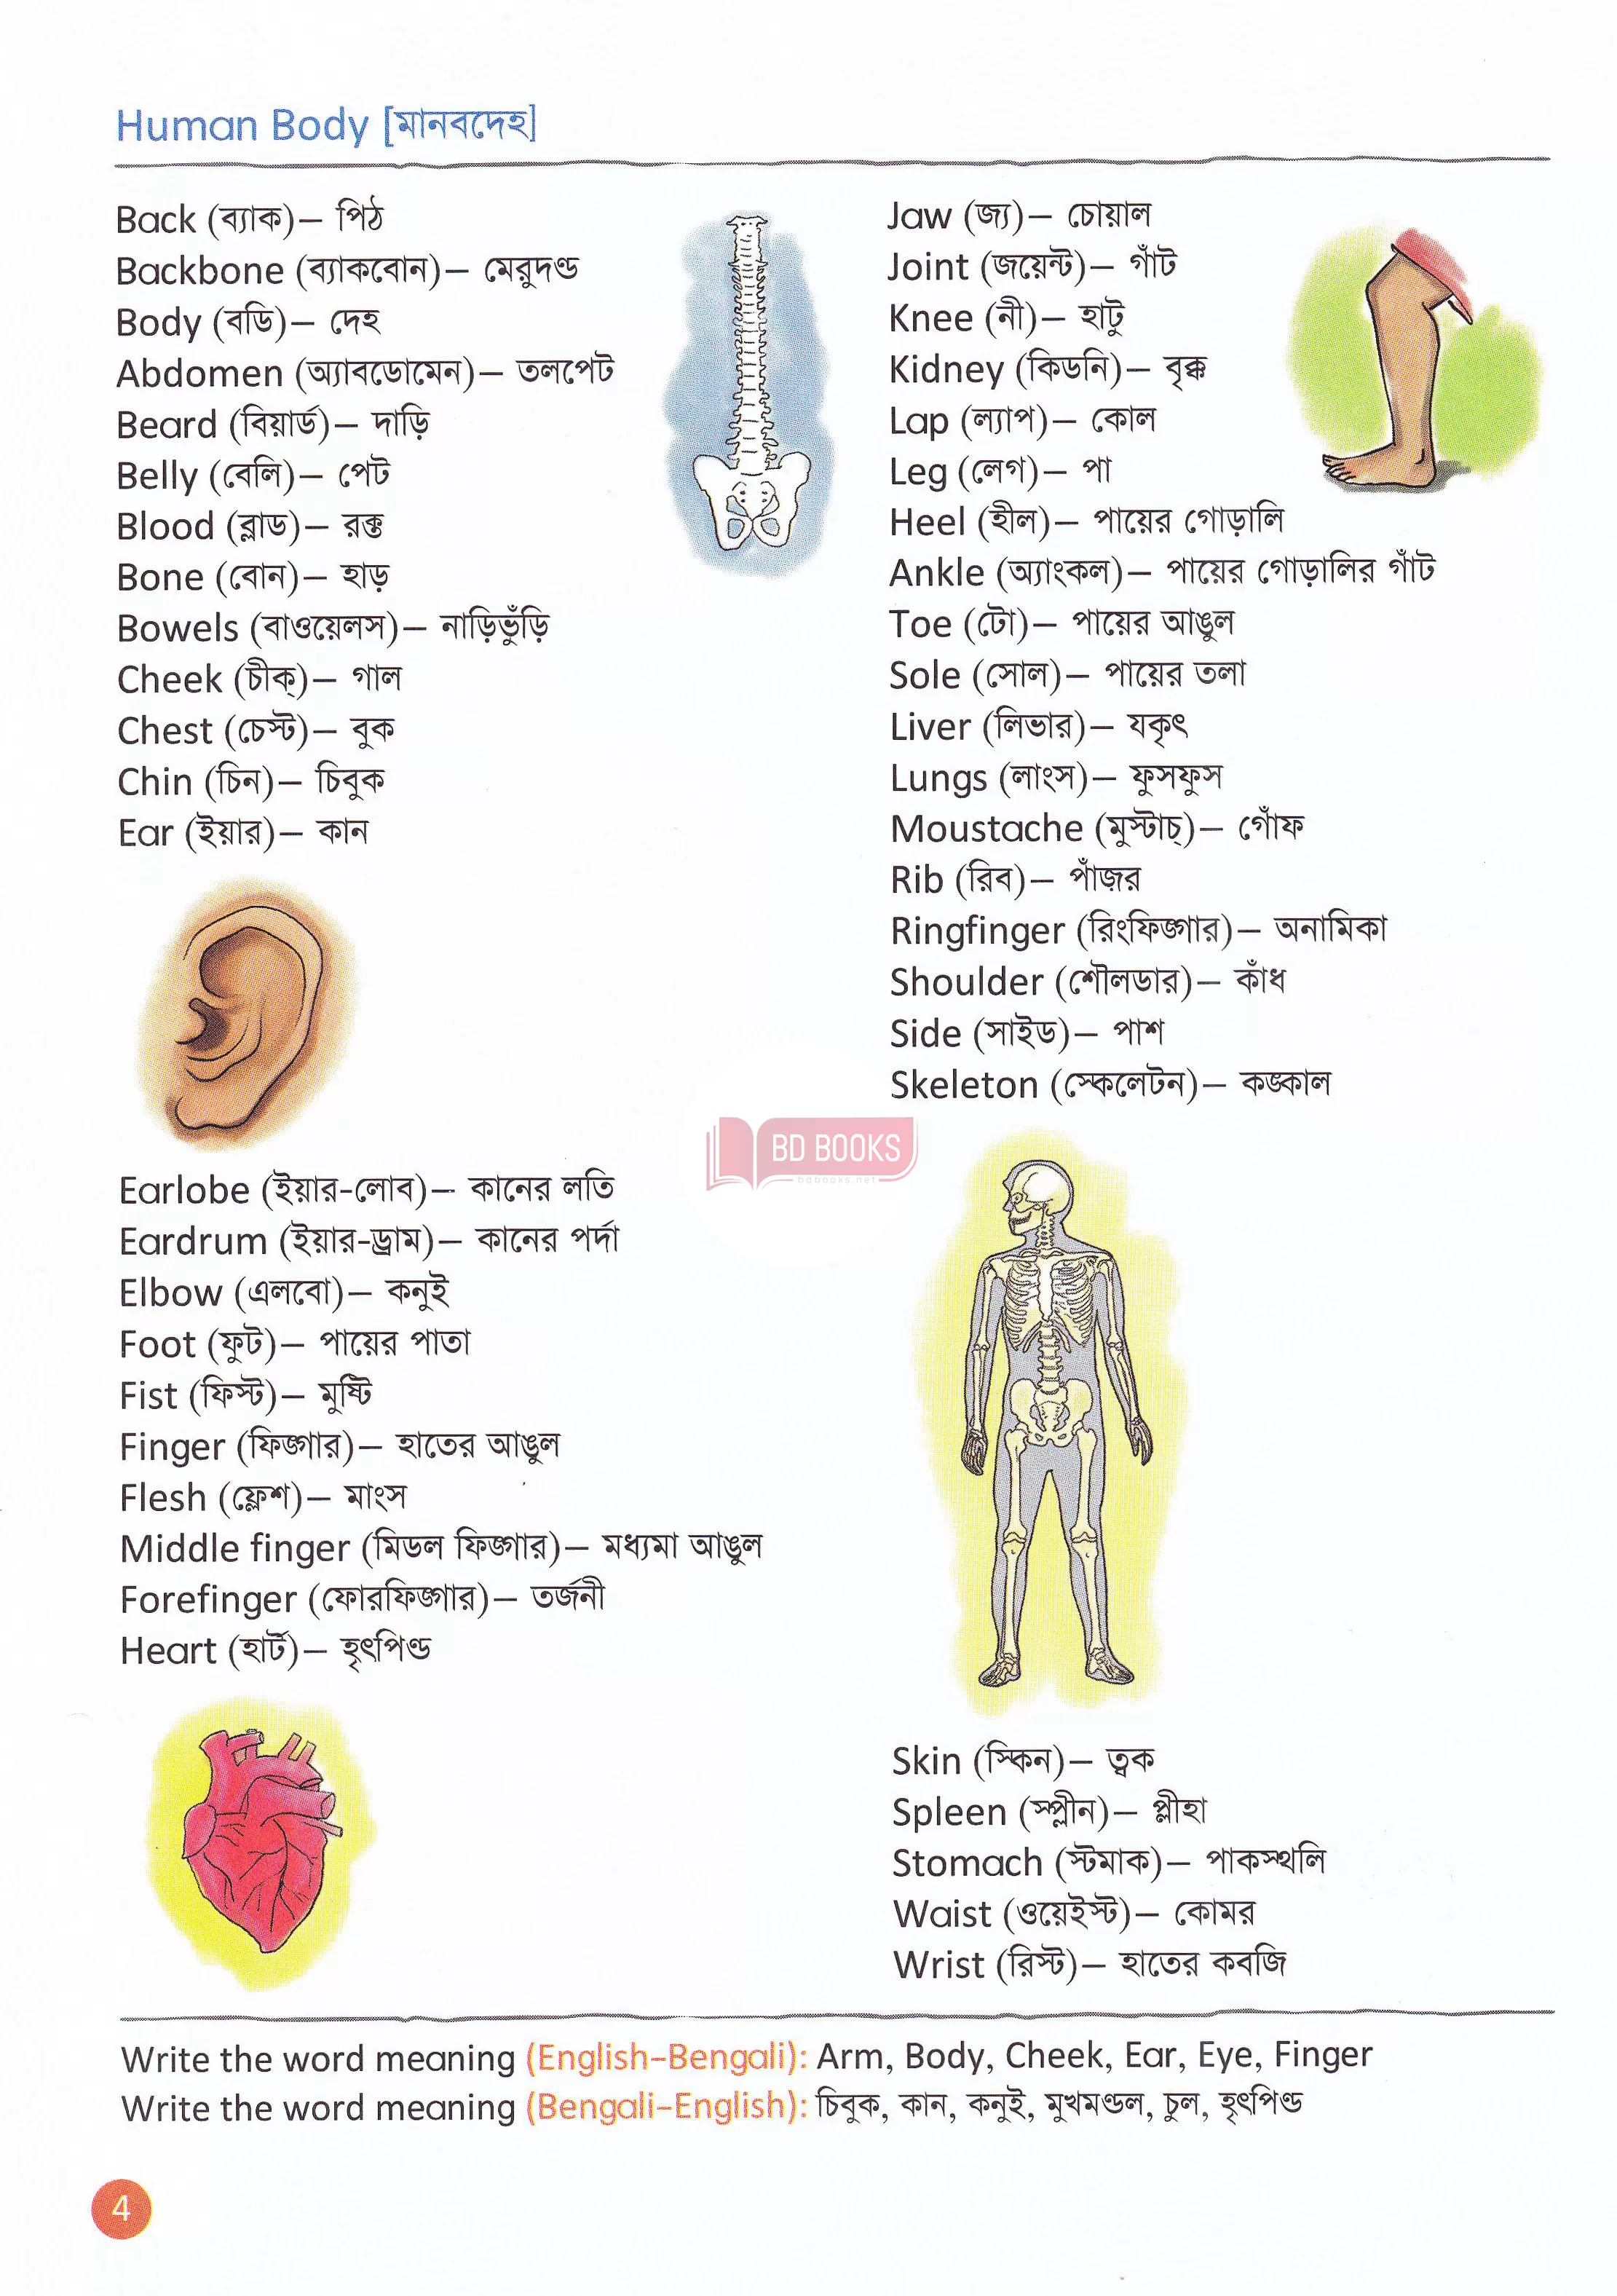 Human Body [মানবদেহ]
Back (ব্যাক)– পিঠ
Backbone (ব্যাকবোন)– মেরুদণ্ড
Body (বডি)– দেহ
Abdomen (অ্যাবডোমেন)– তলপেট
Beard (বিয়ার্ড)– দাড়ি
Belly (বেলি)– পেট
Blood (ব্লাড)– রক্ত
Bone (বোন)– হাড়
Bowels (বাওয়েলস)– নাড়িভুঁড়ি
Cheek (চীক্)– গাল
Chest (চেস্ট)– বুক
Chin (চিন)– চিবুক
Ear (ইয়ার)– কান
Earlobe (ইয়ার-লোব)– কানের লতি
Eardrum (ইয়ার-ড্রাম)– কানের পর্দা
Elbow (এলবো)– কনুই
Foot (ফুট)– পায়ের পাতা
Fist (ফিস্ট)– মুষ্টি
Finger (ফিঙ্গার)– হাতের আঙুল
Flesh (ফ্লেশ)– মাংস
Middle finger (মিডল ফিঙ্গার)– মধ্যমা আঙুল
Forefinger (ফোরফিঙ্গার)– তর্জনী
Heart (হার্ট)– হৃৎপিণ্ড
Jaw (জ্য)– চোয়াল
Joint (জয়েন্ট)– গাঁট
Knee (নী)– হাটু
Kidney (কিডনি)– বৃক্ক
Lap (ল্যাপ)– কোল
Leg (লেগ)– পা
Heel (হীল)– পায়ের গোড়ালি
Ankle (অ্যাংকল)– পায়ের গোড়ালির গাঁট
Toe (টো)– পায়ের আঙুল
Sole (সোল)– পায়ের তলা
Liver (লিভার)– যকৃৎ
Lungs (লাংস)– ফুসফুস
Moustache (মুস্টাচ্)– গোঁফ
Rib (রিব)– পাঁজর
Ringfinger (রিংফিঙ্গার)– অনামিকা
Shoulder (শৌলডার)– কাঁধ
Side (সাইড)– পাশ
Skeleton (স্কেলেটন)– কঙ্কাল
BD BOOKS
bdbooks.net
Skin (স্কিন)– ত্বক
Spleen (স্প্লীন)– প্লীহা
Stomach (স্টমাক)– পাকস্থলি
Waist (ওয়েইস্ট)– কোমর
Wrist (রিস্ট)– হাতের কবজি
Write the word meaning (English–Bengali): Arm, Body, Cheek, Ear, Eye, Finger
Write the word meaning (Bengali–English): চিবুক, কান, কনুই, মুখমণ্ডল, চুল, হৃৎপিণ্ড
4